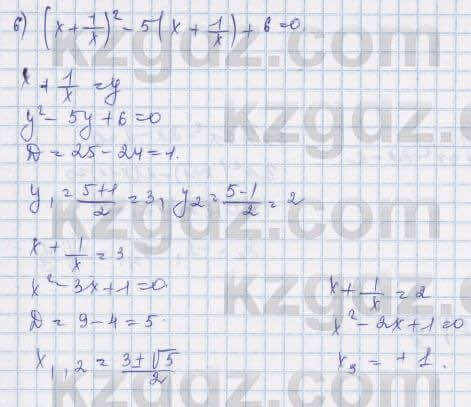 б) (x + 1/x)² - 5(x + 1/x) + 6 = 0
x + 1/x = y
y² - 5y + 6 = 0
D = 25 - 24 = 1.
y₁ = (5+1)/2 = 3, y₂ = (5-1)/2 = 2
x + 1/x = 3
x² - 3x + 1 = 0
D = 9 - 4 = 5
x₁,₂ = (3±√5)/2
x + 1/x = 2
x² - 2x + 1 = 0
x₃ = + 1.
kzgdz.com
kzgdz.com
kzgdz.com
kzgdz.com